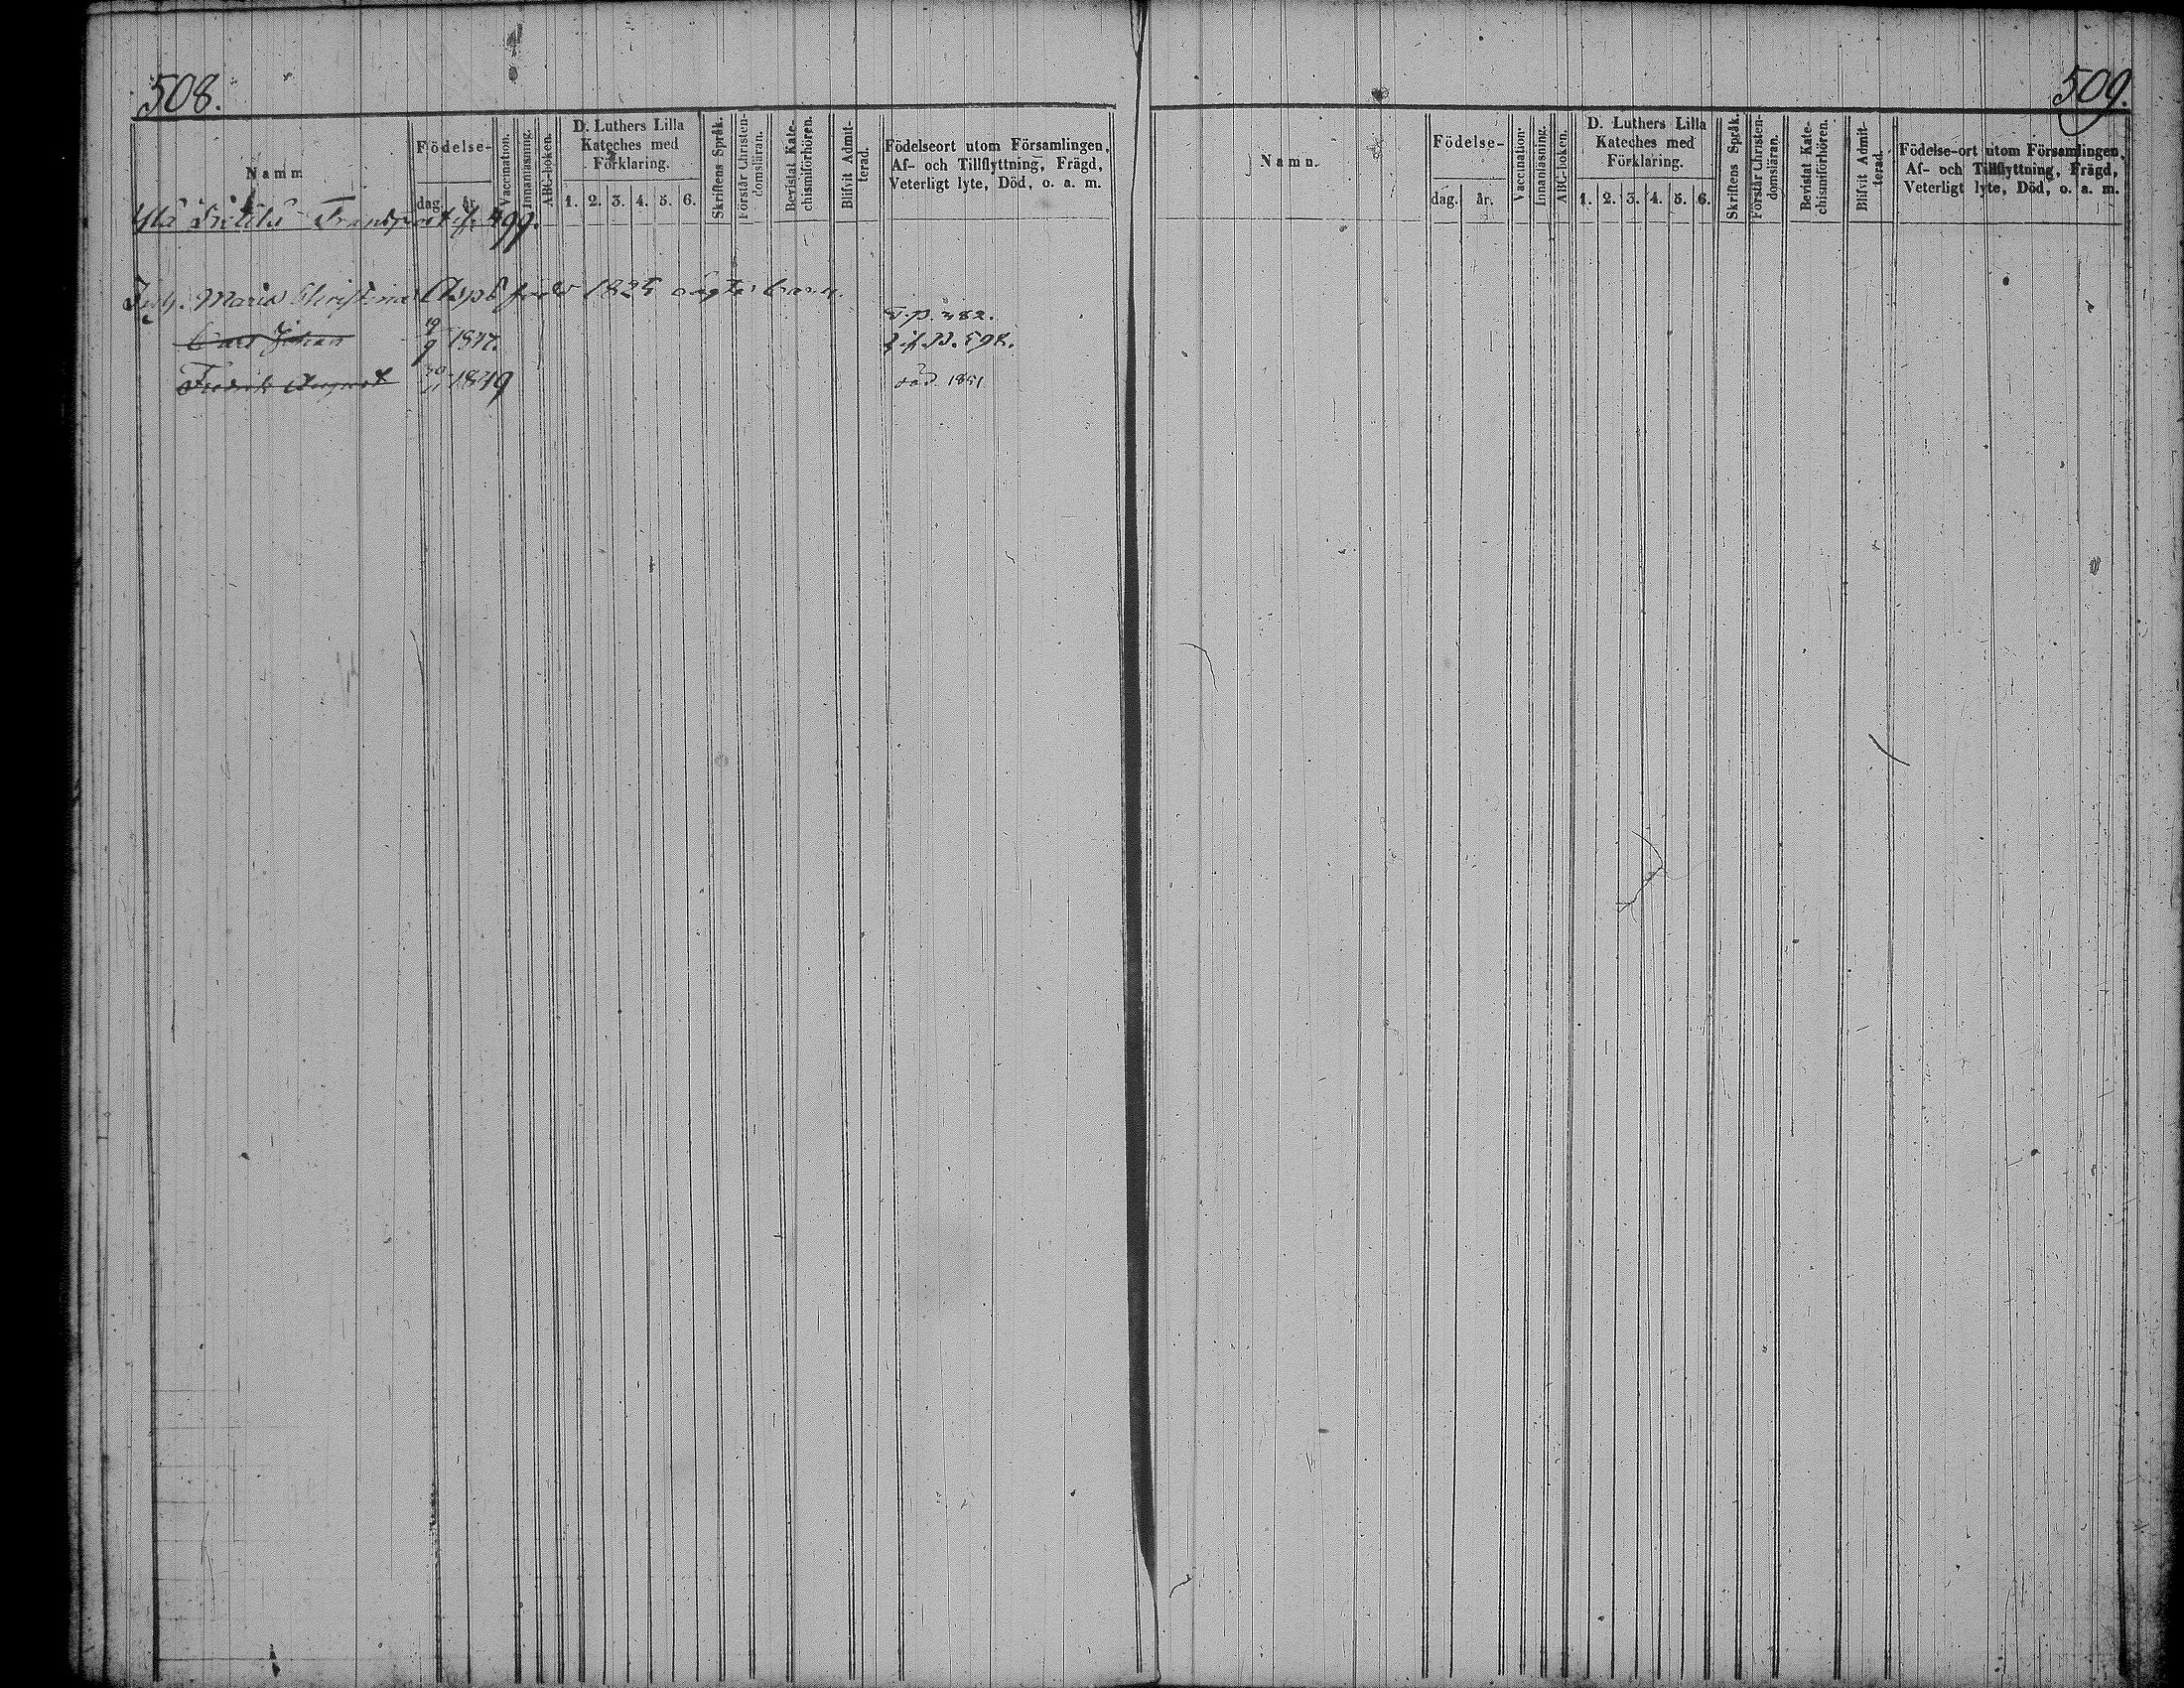 508.
Namn
Födelse-
dag. år.
Vaccination.
Innanläsning.
ABC-boken.
D. Luthers Lilla
Kateches med
Förklaring.
1. 2. 3. 4. 5. 6.
Skriftens Språk.
Förstår Christen-
domsläran.
Bevistat Kate-
chismiförhören.
Blifvit Admit-
terad.
Födelseort utom Församlingen,
Af- och Tillflyttning, Frägd,
Veterligt lyte, Död, o. a. m.
Transport fr 499.
Maria Christina född 1825 oägta barn.
T.p. 382.
Carl Johan 19/9 1847. 598.
Fredrik August 1849 död 1851
509.
Namn.
Födelse-
dag. år.
Vaccination.
Innanläsning.
ABC-boken.
D. Luthers Lilla
Kateches med
Förklaring.
1. 2. 3. 4. 5. 6.
Skriftens Språk.
Förstår Christen-
domsläran.
Bevistat Kate-
chismiförhören.
Blifvit Admit-
terad.
Födelse-ort utom Församlingen,
Af- och Tillflyttning, Frägd,
Veterligt lyte, Död, o. a. m.